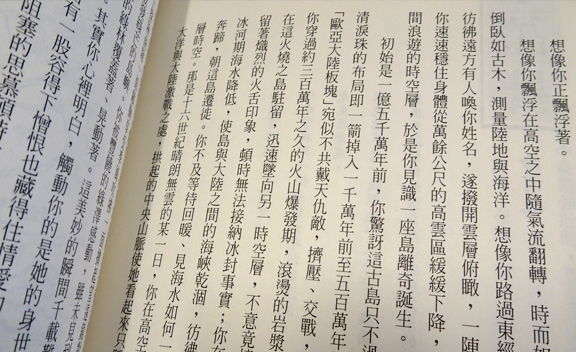 想像你正飄浮著。
想像你飄浮在高空之中隨氣流翻轉，時而如
倒臥如古木，測量陸地與海洋。想像你路過東經
彷彿遠方有人喚你姓名，遂撥開雲層俯瞰，一陣
你速速穩住身體從萬餘公尺的高雲區緩緩下降，
間浪遊的時空層，於是你見識一座島離奇誕生。
初始是一億五千萬年前，你驚訝這古島只不過
清淚珠的布局即一箭掉入一千萬年前至五百萬年
「歐亞大陸板塊」宛似不共戴天仇敵，擠壓、交戰，
你穿過約三百萬年之久的火山爆發期，滾燙的岩漿
在這火燒之島駐留，迅速墜向另一時空層，不意竟
留著熾烈的火舌印象，頓時無法接納冰封事實；你在
冰河期海水降低，使島與大陸之間的海峽乾涸，彷彿
奔蹄，朝這島遷徙。你不及等待回暖、見海水如何一
層時空。那是十六世紀晴朗無雲的某一日，你在高空
大洋與大陸激戰之處，拱起的中央山脈使她看起來只
晃動著。這美妙的瞬間千載難
其實你心裡明白，觸動你的是她的身世
有一股容得下憎恨也藏得住情愛的
阻塞的思慕